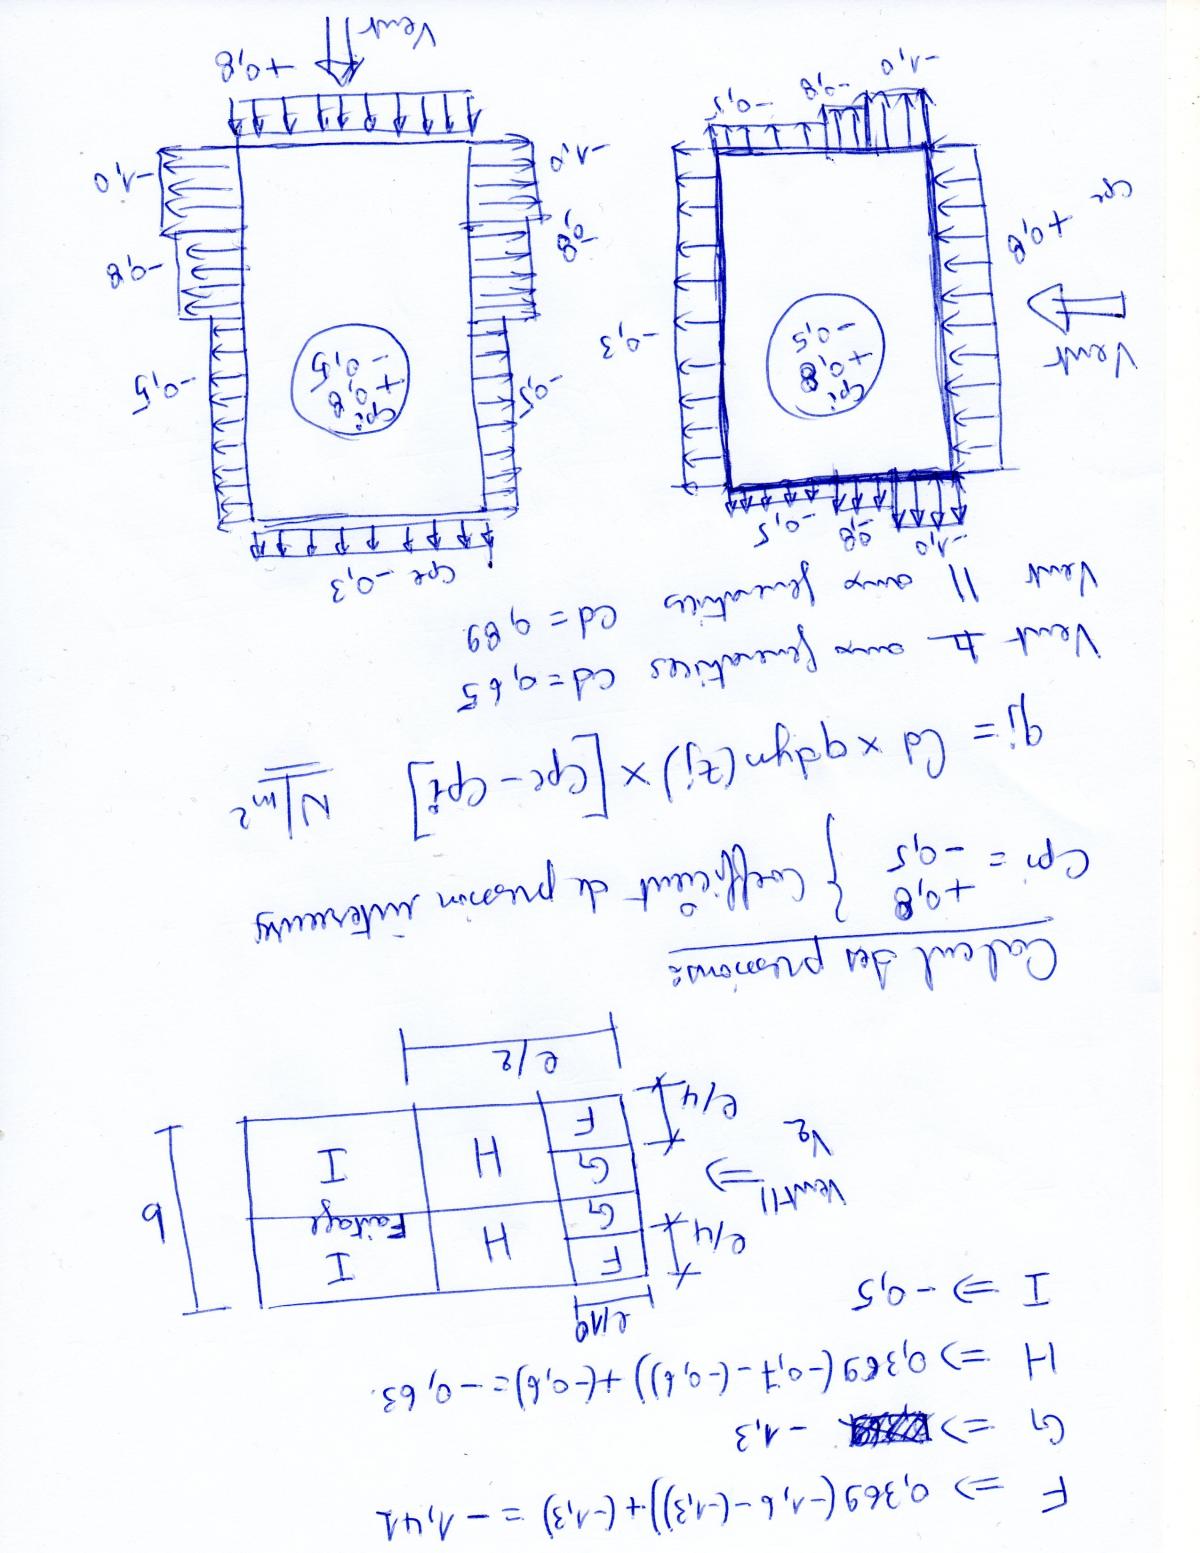 F ⇒ 0,369(-1,6-(-1,3))+(-1,3) = -1,41
G ⇒ -1,3
H ⇒ 0,369(-0,7-(-0,6))+(-0,6) = -0,63.
I ⇒ -0,5
e/10
e/4 F H I
G Faitage b
Vent// ⇒
V2
G
e/4 F H I
e/2
Calcul des pressions:
Cpi = +0,8
-0,5 } Coefficient de pression intérieure
qj = Cd × qdyn(zj) × [Cpe - Cpi] N/m2
Vent ⊥ aux génératrices Cd = 0,65
Vent // aux génératrices Cd = 0,89
-1,0 -0,8 -0,5
Vent
Cpe +0,8
Cpi
+0,8
-0,5
-0,3
-1,0 -0,8 -0,5
Cpe -0,3
-0,5 -0,5
Cpi
+0,8
-0,5
-0,8 -0,8
-1,0 -1,0
+0,8
Vent